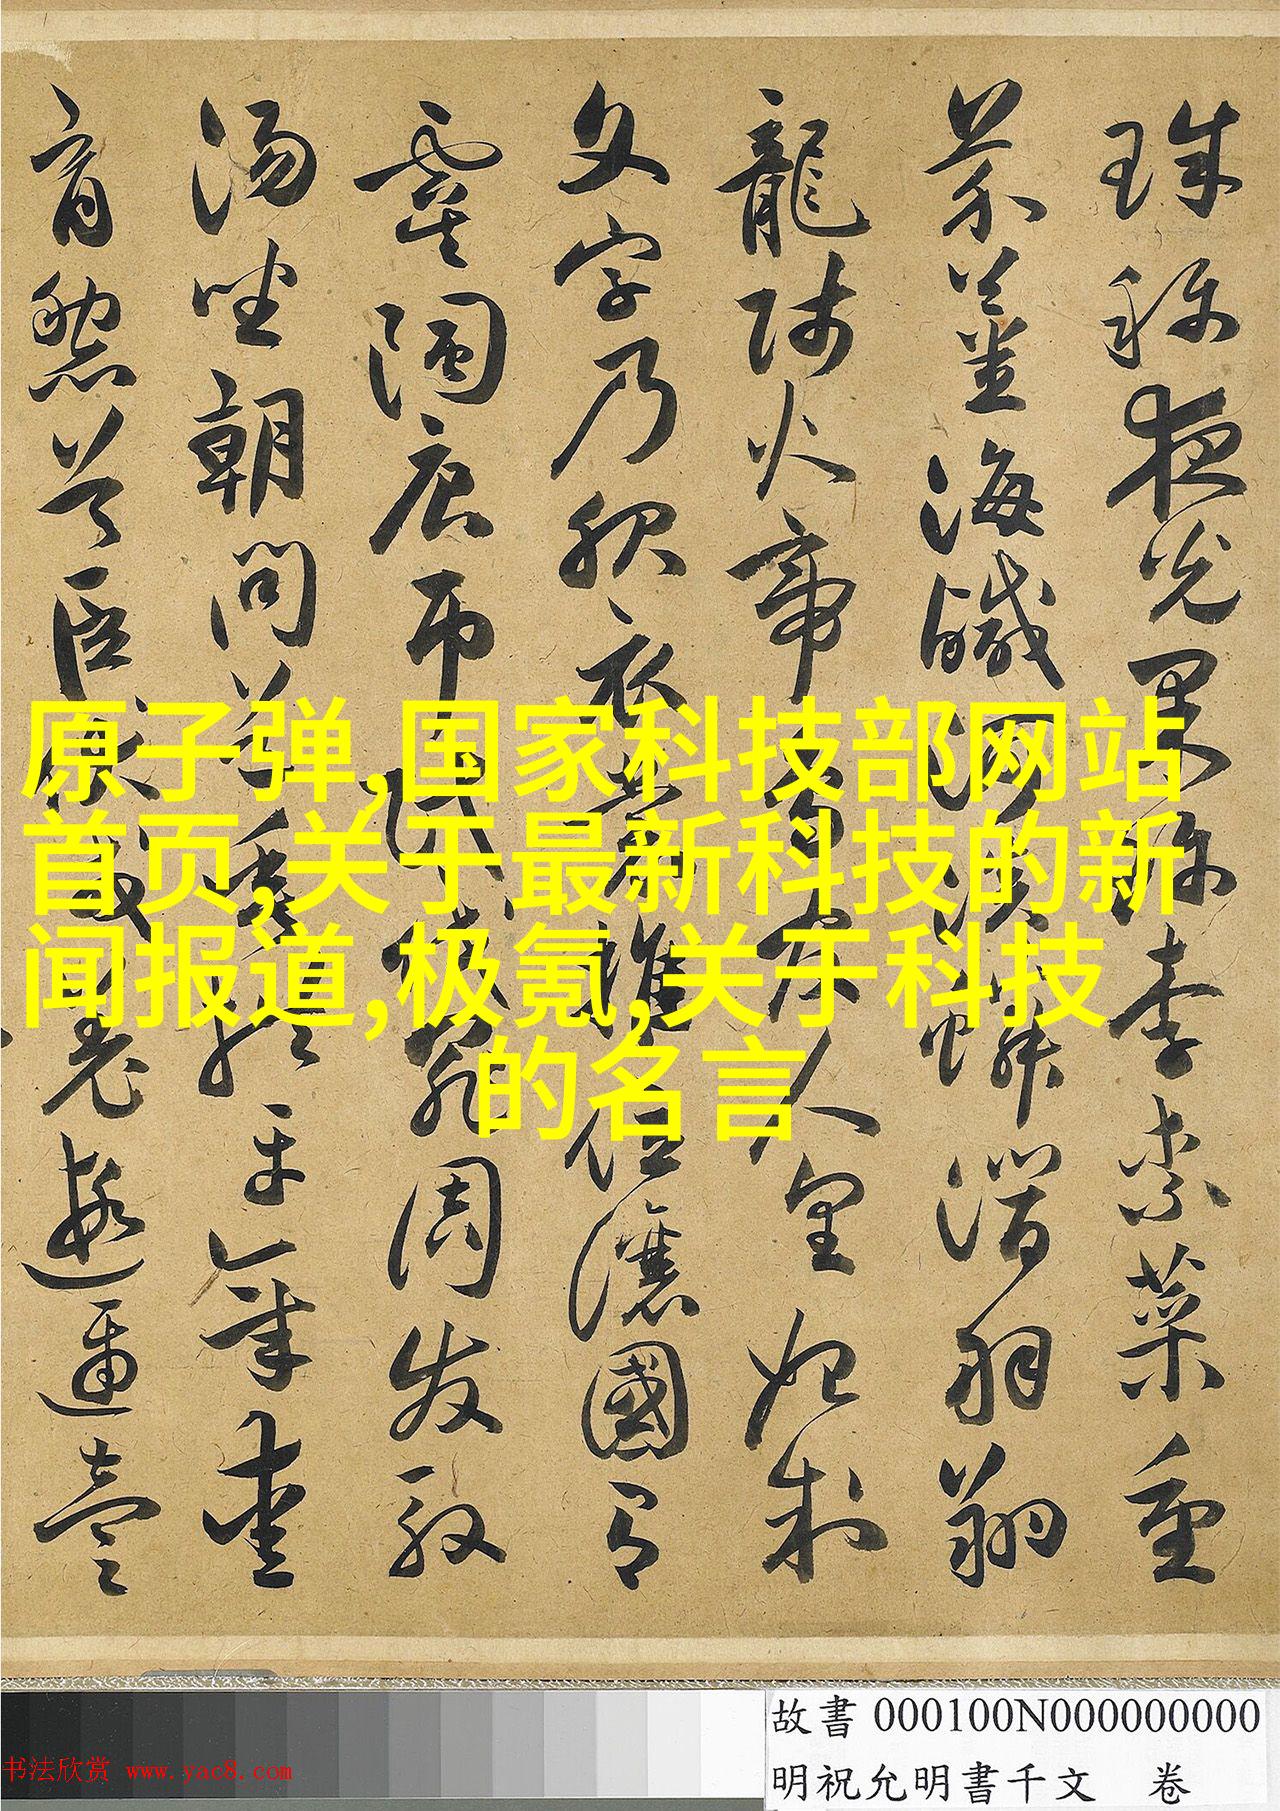 珠称夜光果珍李柰菜重
芥薑海鹹河淡鳞潜羽翔
龍师火帝鸟官人皇始制
文字乃服衣裳推位讓國有
虞陶唐吊民伐罪周发殷
湯坐朝问道垂拱平章爱
育黎首臣伏戎羌遐迩壹
原子弹,国家科技部网站
首页,关于最新科技的新
闻报道,极氪,关于科技
的名言
故書 000100N000000000
明祝允明書千文 卷
书法欣赏 www.yac8.com